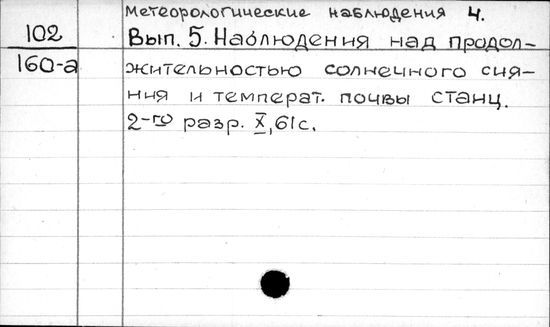 метеорологические наблюдения 4.
102
Вып. 5. Наблюдения над продол-
160-а
жительностью солнечного сия-
ния и температ. почвы станц.
2-го разр. X, 61с.